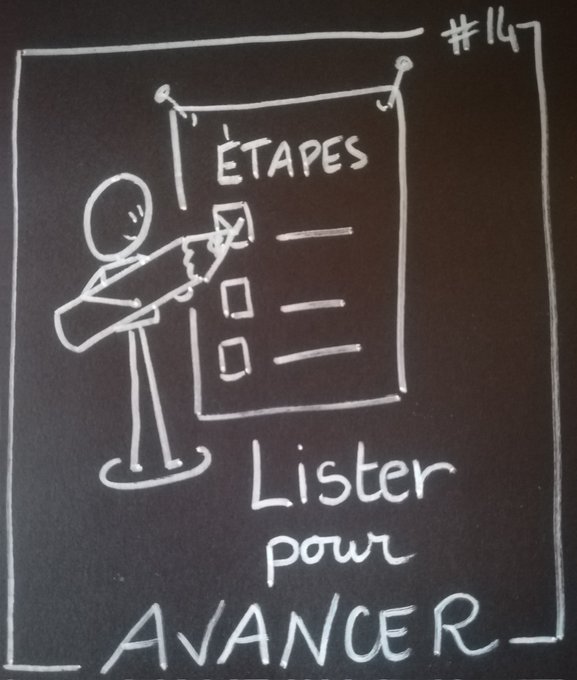 #14
ÉTAPES
Lister
pour
AVANCER